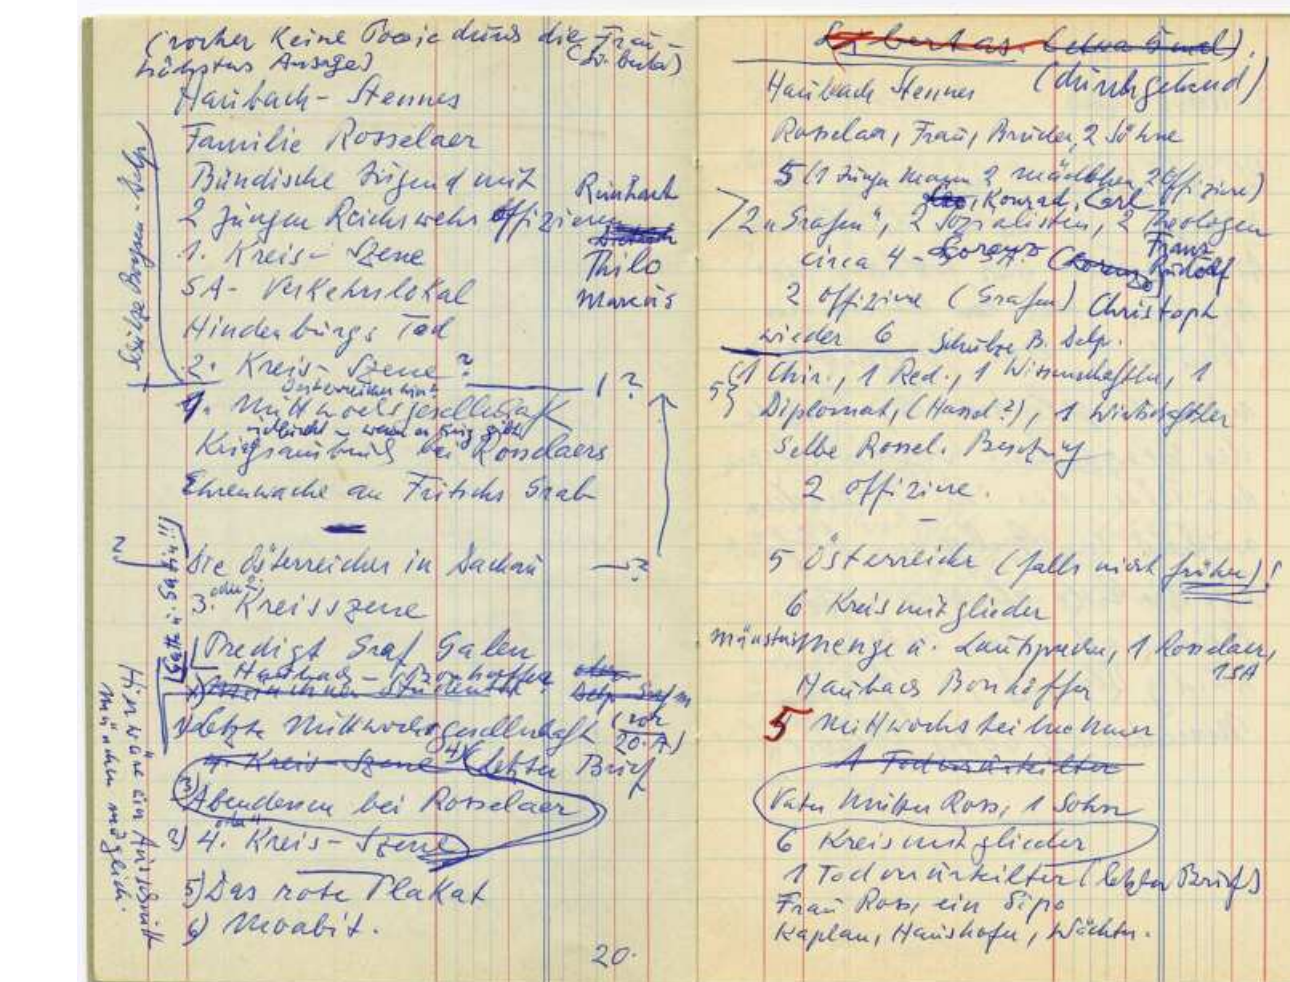 (vorher keine Poesie durch die Frau
höchstens Ansage) (Libertas)
Haubach-Stennes
Familie Rosselaer
Bündische Jugend mit
2 jungen Reichswehr Offizieren
Thilo
Markus
1. Kreis-Szene
SA-Verkehrslokal
Hindenburgs Tod
2. Kreis-Szene ?
1 ?
1. Mittwochsgesellschaft
vielleicht - wenn es Krieg gibt
Kriegsausbruch bei Rosselaers
Ehrenwache an Fritschs Grab
Die Österreicher in Dachau - ?
3. Kreisszene
Predigt Graf Galen
Haubach - Bonhoeffer
1) letzte Mittwochsgesellschaft (vor
20. A)
4. Kreis-Szene 4) (letzter Brief
3) Abendessen bei Rosselaer
2) 4. Kreis-Szene
5) Das rote Plakat
6) Moabit.
Hier wäre ein Ausschnitt
München möglich.
20.
Libertas (etwa 5 mal).
Haubach Stennes (durchgehend)
Rosselaer, Frau, Bruder, 2 Söhne
5 (1 junger Mann 2 Mädchen 2 Offiziere)
Konrad, Carl
2 "Grafen", 2 Sozialisten, 2 Theologen
Franz
circa 4 - Rudolf
2 Offiziere (Grafen) Christoph
wieder 6 Schulze B. Delp.
5 { 1 Chir., 1 Red., 1 Wissenschaftler, 1
Diplomat, (Hassel?), 1 Wirtschaftler
Selbe Rossel. Besetzung
2 Offiziere.
5 Österreicher (falls nicht früher)!
6 Kreismitglieder
Münster Menge u. Lautsprecher, 1 Rosselaer,
1 SA
Haubach Bonhöffer
5 Mittwochsteilnehmer
1 Todverurteilter
Vater Mutter Ross, 1 Sohn
6 Kreismitglieder
1 Todverurteilter (letzter Brief)
Frau Ross, ein Sipo
Kaplan, Haushofer, Wächter.